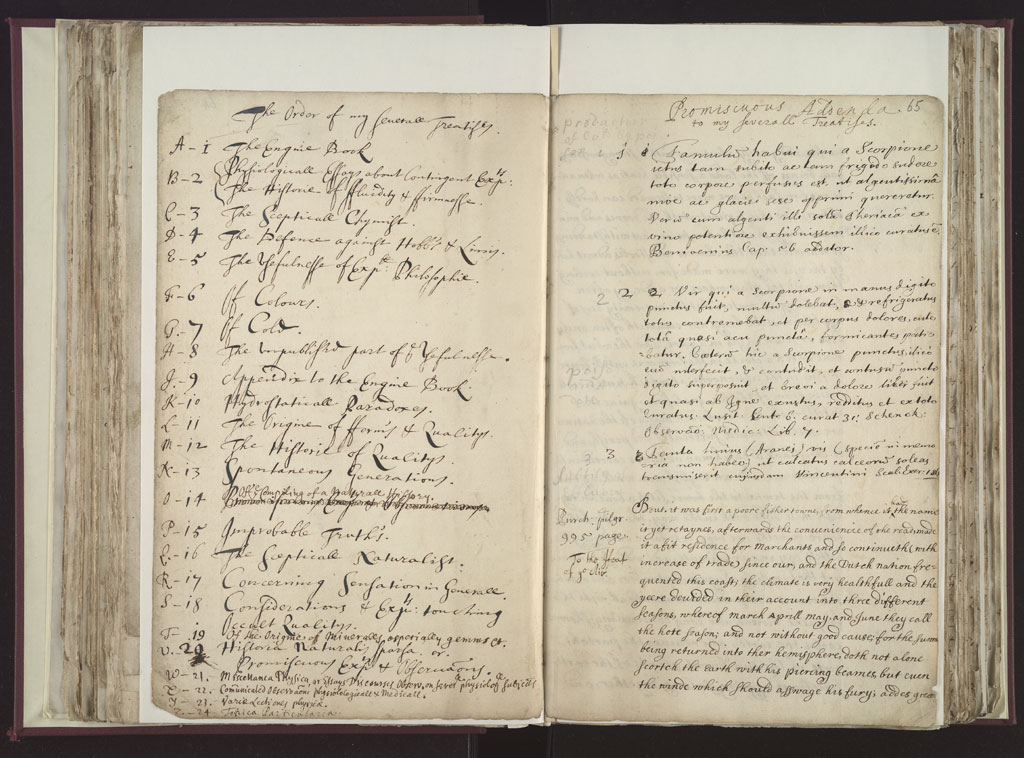 The Order of my Generall Treatises.
A - 1 The Engine Book
B - 2 Physiologicall Essays about contingent Exp:
The Historie of Fluidity & Firmnesse.
C - 3 The Scepticall Chymist.
D - 4 The Defence against Hobbs & Linus.
E - 5 The Usefulnesse of Exp: Philosophie.
F - 6 Of Colours.
G - 7 Of Cold.
H - 8 The unpublish'd part of Usefulnesse.
J - 9 Appendix to the Engine Book.
K - 10 Hydrostaticall Paradoxes.
L - 11 The Origine of Formes & Qualitys.
M - 12 The Historie of Qualitys.
N - 13 Spontaneous Generations.
O - 14 Of Compiling of a Naturall History.
P - 15 Improbable Truths.
Q - 16 The Scepticall Naturalist.
R - 17 Concerning Sensation in Generall.
S - 18 Considerations & Exp: touching
Occult Qualitys.
T - 19 Of the Origine of Mineralls, especially gemms &c.
V - 20 Historia Naturalis sparsa. or.
Promiscuous Exp: & Observations.
W - 21. Miscellanea Physica, or Essays Discourses Observ. on sever physiolog subjects
22. Comunicated Observations physiologicall & Medicall.
Y - 23. Variae Lectiones physicae.
24 Topica Particularia.
Promiscuous Addenda 65
to my severall Treatises.
1 1 Famulũ habui qui a Scorpione
ictus tam subito ac tam frigido sudore
toto corpore perfusus est, ut algentissimâ
nive ac glacie sese opprimi quereretur.
Verũ cum algenti illi solâ Theriacâ ex
vino potentiore exhibuissem illico curatus ẽ
Benivenius Cap: 56 additor.
2 2 2 Vir qui a Scorpione in manus digito
punctus fuit, multũ dolebat, & refrigeratus
totus contremebat, et per corpus dolores, cute
totâ quasi acu punctâ, formicantes pati-
ebatur. Caeterũ hic a Scorpione punctus, illico
eũ interfecit, & contudit, et contusũ puncto
digito superposuit, et brevi a dolore liber fuit
et quasi ab Igne exustus, redditus et ex toto
curatus. Lusit: Cent: 6. curat 31. Schenck:
Observatio: Medic: Lib. 7.
3 3 Tanta hujus (Aranei) vis (specie in memo
ria non habeo) ut calcatus calceorũ soleas
transmiserit Scal: Exer: 186
it was first a poore fisher towne, from whence it had the name
it yet retaynes, afterwards the conveniencie of the road made
it a fit residence for Marchants and so continueth (with
increase of trade) since our, and the Dutch nation fre-
quented this coast; the climate is very healthfull and the
yeere devided in their account into three different
seasons, whereof March Aprill May, and June they call
the hote season; and not without good cause; for the Sunn
being returned into ther hemisphere, doth not alone
scorch the Earth with his piercing beames, but even
the winde which should asswage his fury, addes grea
Purch: pilgr
995 page.
To the Heat
of ye Air.